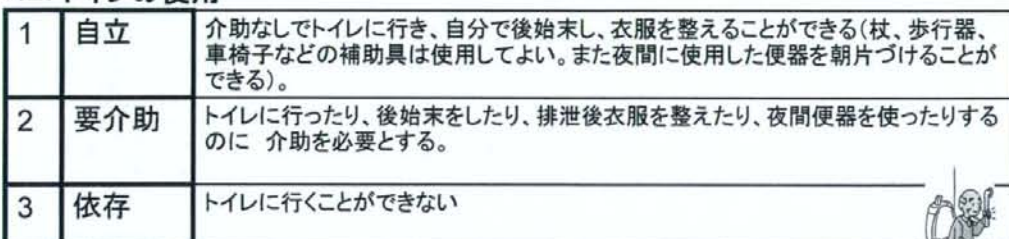 1 自立 介助なしでトイレに行き、自分で後始末し、衣服を整えることができる(杖、歩行器、
車椅子などの補助具は使用してよい。また夜間に使用した便器を朝片づけることが
できる)。
2 要介助 トイレに行ったり、後始末をしたり、排泄後衣服を整えたり、夜間便器を使ったりする
のに 介助を必要とする。
3 依存 トイレに行くことができない